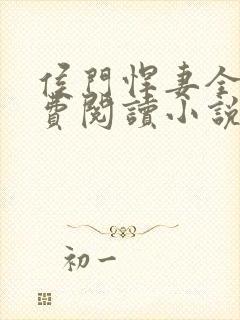 侯門悍妻全
費閱讀小說
初一